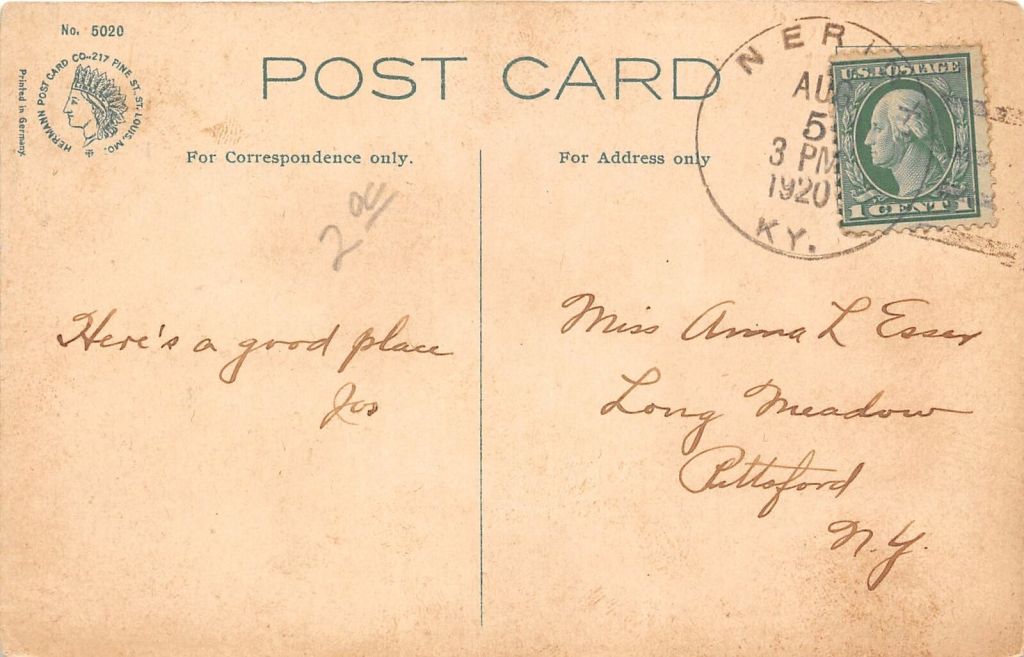 No. 5020
HERMANN POST CARD CO. 217 PINE ST. ST. LOUIS, MO.
Printed in Germany
POST CARD
For Correspondence only.
For Address only
AUG
5
3 PM
1920
KY.
U.S. POSTAGE
1 CENT 1
2 00
Here's a good place
Jos
Miss Anna L Essex
Long Meadow
Pittsford
N.Y.